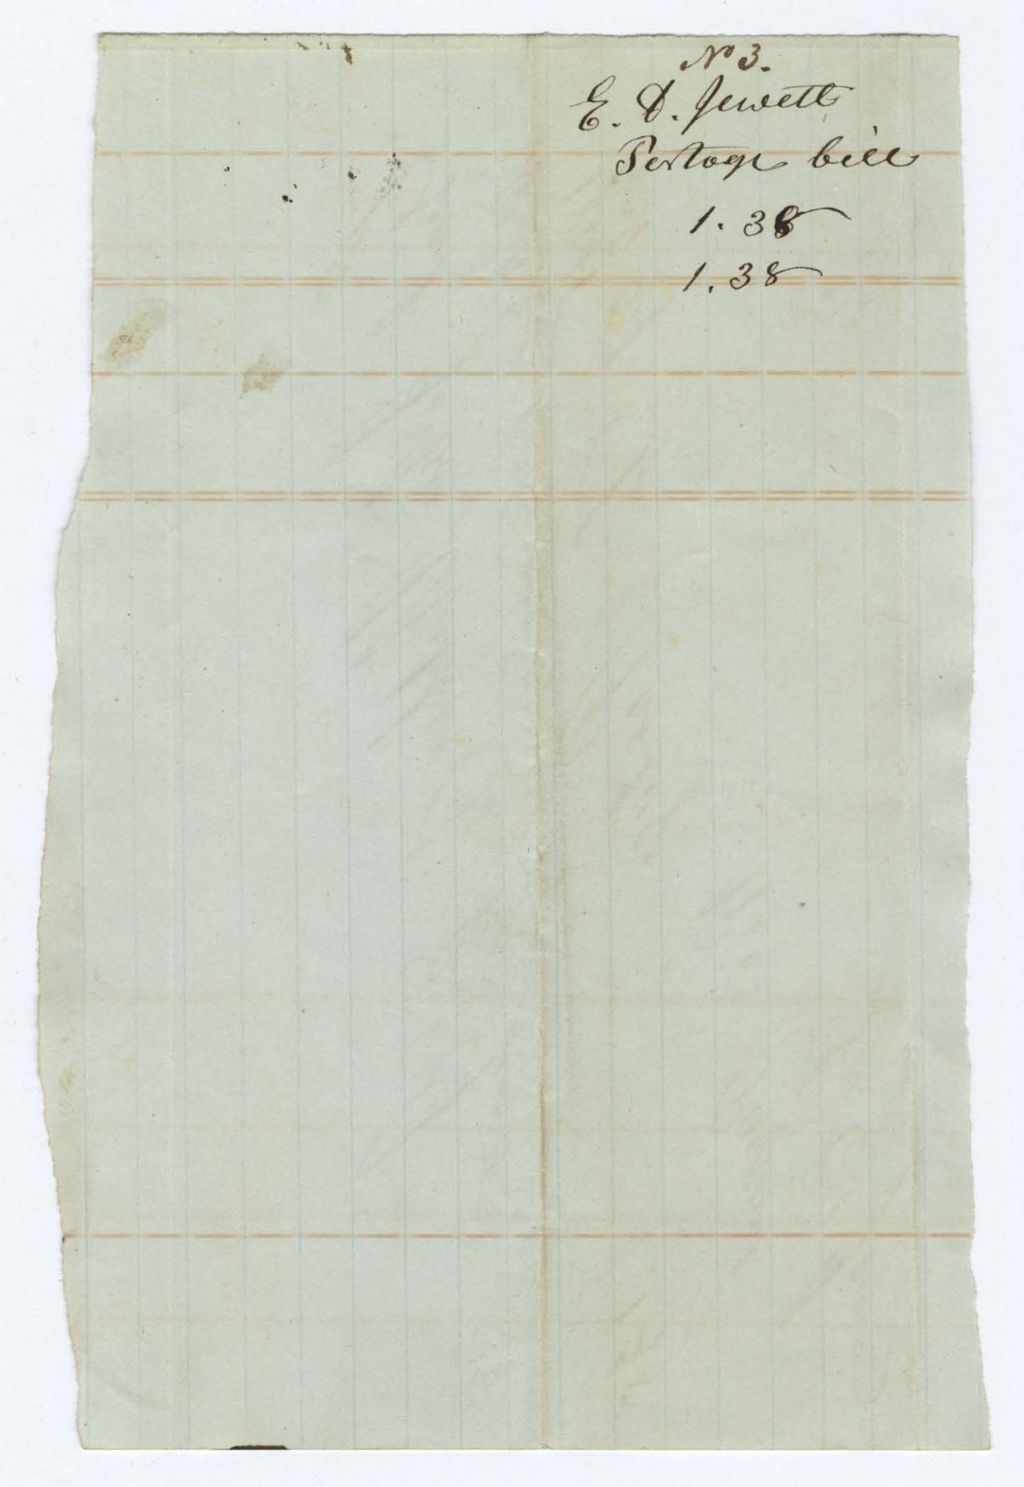 No 3.
E. D. Jewett
Postage bill
1.38
1.38